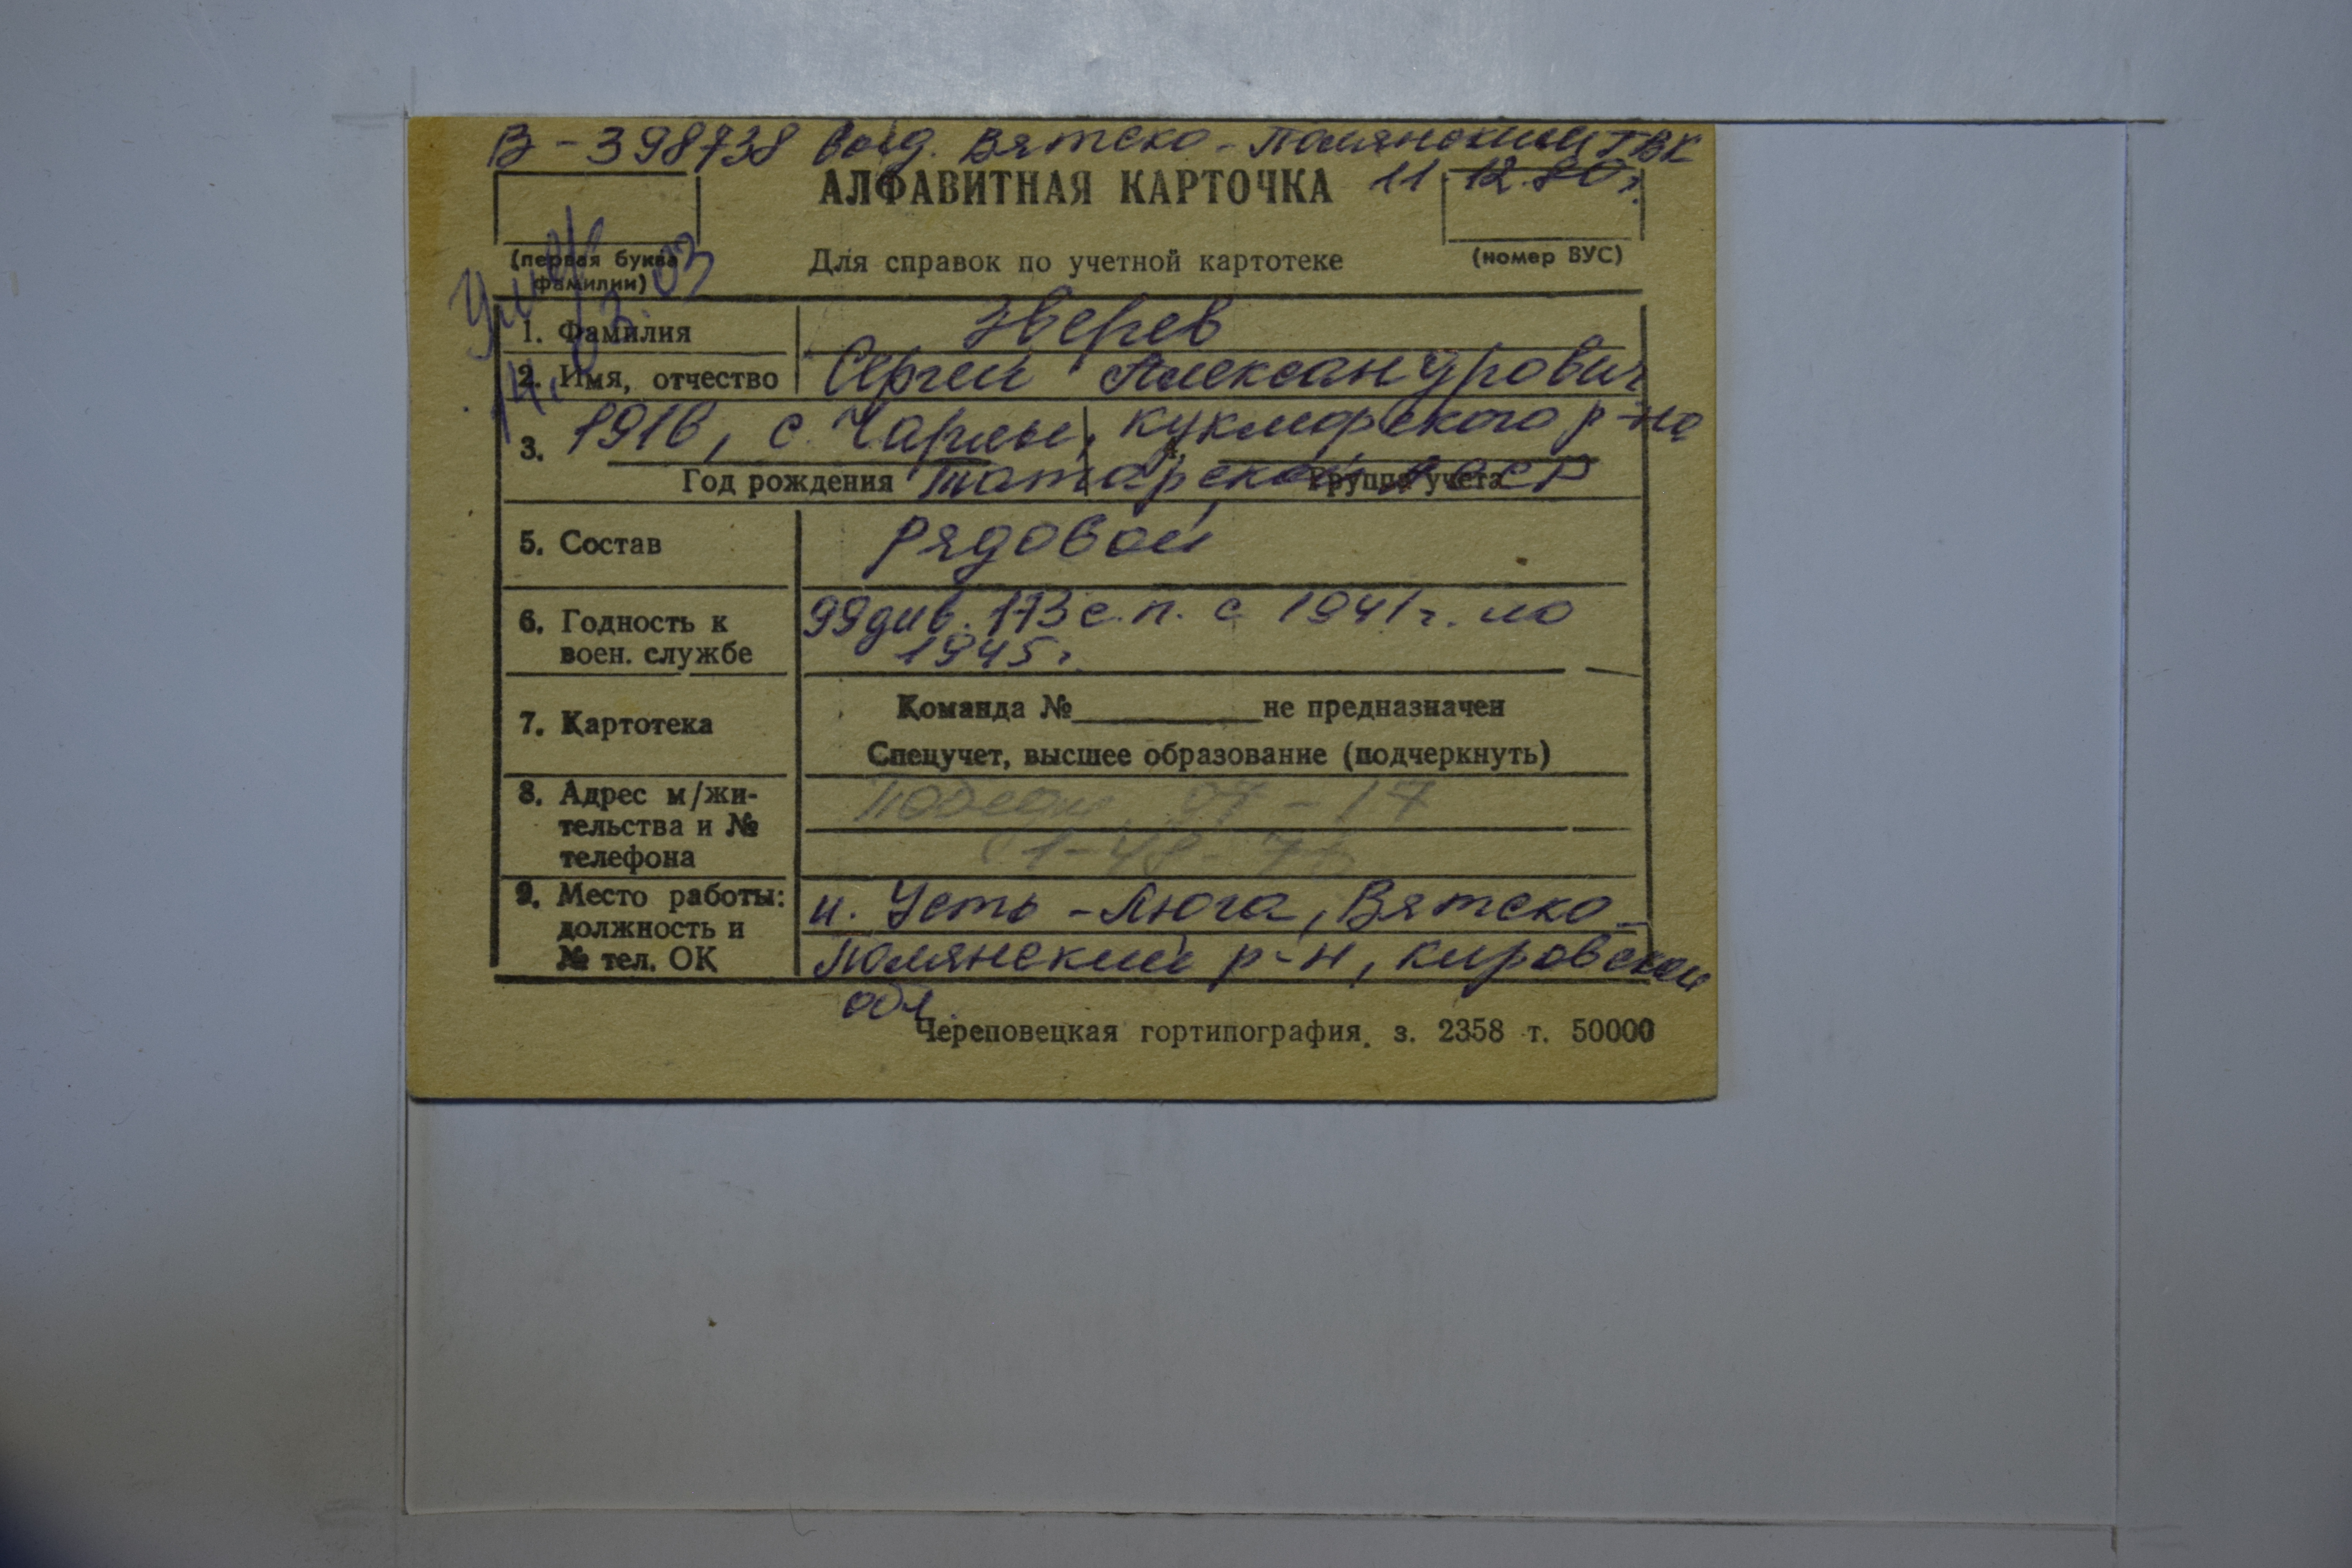 В-398738 выд. Вятско-Полянский ГВК
11.12.80г.
АЛФАВИТНАЯ КАРТОЧКА
(первая буква фамилии)
Для справок по учетной картотеке
(номер ВУС)
Умер
14.03.03
1. Фамилия Зверев
2. Имя, отчество Сергей Александрович
3. 1916, с. Чарлы, Кукморского р-на
Год рождения Татарской АССР
Группа учета
5. Состав рядовой
6. Годность к воен. службе 99 див. 173 с.п. с 1941г. по
1945г.
7. Картотека
Команда № не предназначен
Спецучет, высшее образование (подчеркнуть)
8. Адрес м/жи-
тельства и №
телефона
Победы 97-17
9. Место работы:
должность и
№ тел. ОК
н. Усть-Люга, Вятско-
Полянский р-н, Кировской
обл.
Череповецкая гортипография. з. 2358 т. 50000